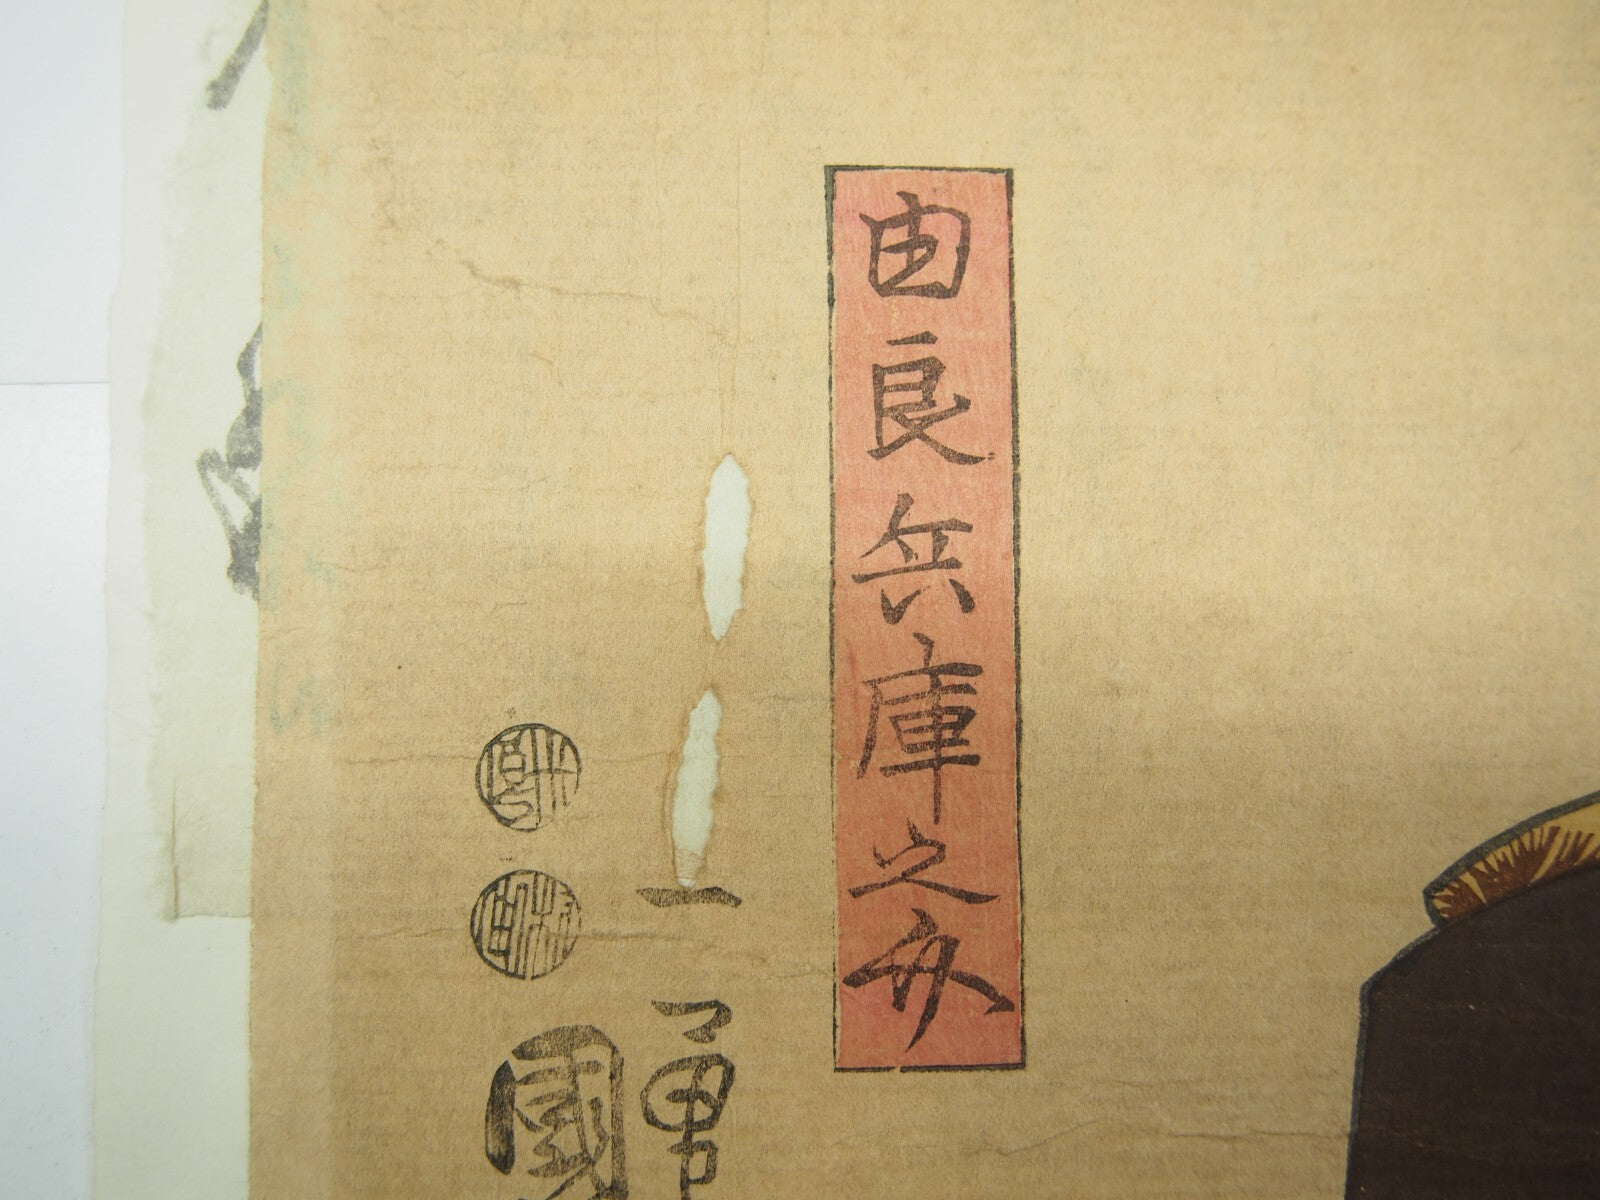 由良兵庫之介
一勇
國